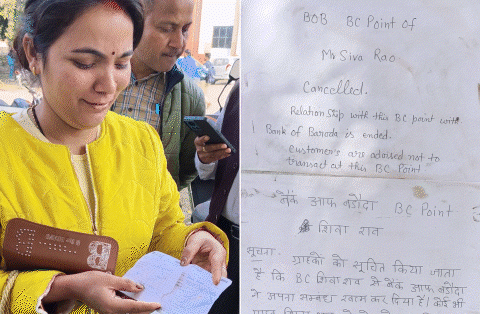 BOB BC Point of
Mr Siva Rao
Cancelled.
Relationship with this BC point with
Bank of Baroda is ended.
Customer's are advised not to
transact at this BC Point
बैंक आफ बड़ौदा BC Point
शिवा राव
सूचना:- ग्राहकों को सूचित किया जाता
है कि BC शिवा राव से बैंक आफ बड़ौदा
ने अपना सम्बन्ध खत्म कर दिया है। कोई भी